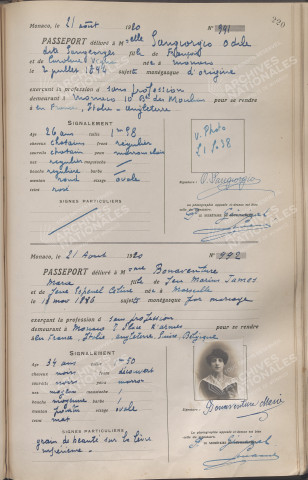 220
Monaco, le 21 août 1920 N° 991
PASSEPORT délivré à Melle Sangiorgio Odile
dite Sangeorges fille de François
et de Caroline née à Monaco
le 2 juillet 1894 sujette monégasque d'origine
exerçant la profession de sans profession
demeurant à Monaco 10 Bd des Moulins pour se rendre
en France, Italie, Angleterre
SIGNALEMENT
Age 26 ans taille 1m 98
cheveux chatains front régulier
sourcils chatain yeux marron clair
nez régulier moustache /
bouche régulière barbe /
menton rond visage ovale
teint rosé
SIGNES PARTICULIERS
V. Photo
21.9.38
Signature :
O. Sangiorgio
Monaco, le 21 Août 1920 N° 992
PASSEPORT délivré à Mme Bonaventure
Marie fille de Jean Marius James
et de Jane née à Marseille
le 18 mai 1886 sujette monégasque par mariage
exerçant la profession de sans profession
demeurant à Monaco 7 Place d'armes pour se rendre
en France, Italie, Angleterre, Suisse, Belgique
SIGNALEMENT
Age 34 ans taille 1m 50
cheveux noirs front découvert
sourcils noirs yeux marron
nez moyen moustache /
bouche moyenne barbe /
menton visage ovale
teint mat
SIGNES PARTICULIERS
grain de beauté sur la lèvre
supérieure
Signature :
Bonaventure Marie
ARCHIVES
NATIONALES